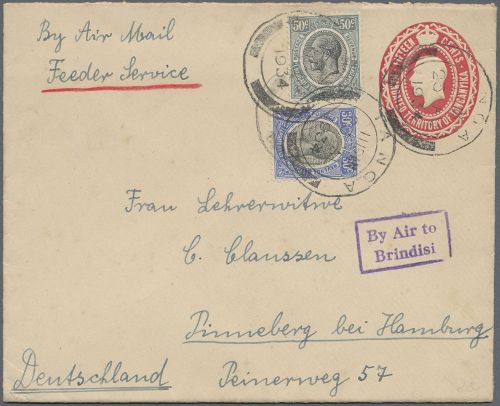 By Air Mail
Feeder Service
50c 50c
1934
FIFTEEN CENTS
TERRITORY OF TANGANYIKA
30c 30c
TANGA
Frau Lehrerwitwe
C. Claussen
By Air to
Brindisi
Pinneberg bei Hamburg
Deutschland Peinerweg 57